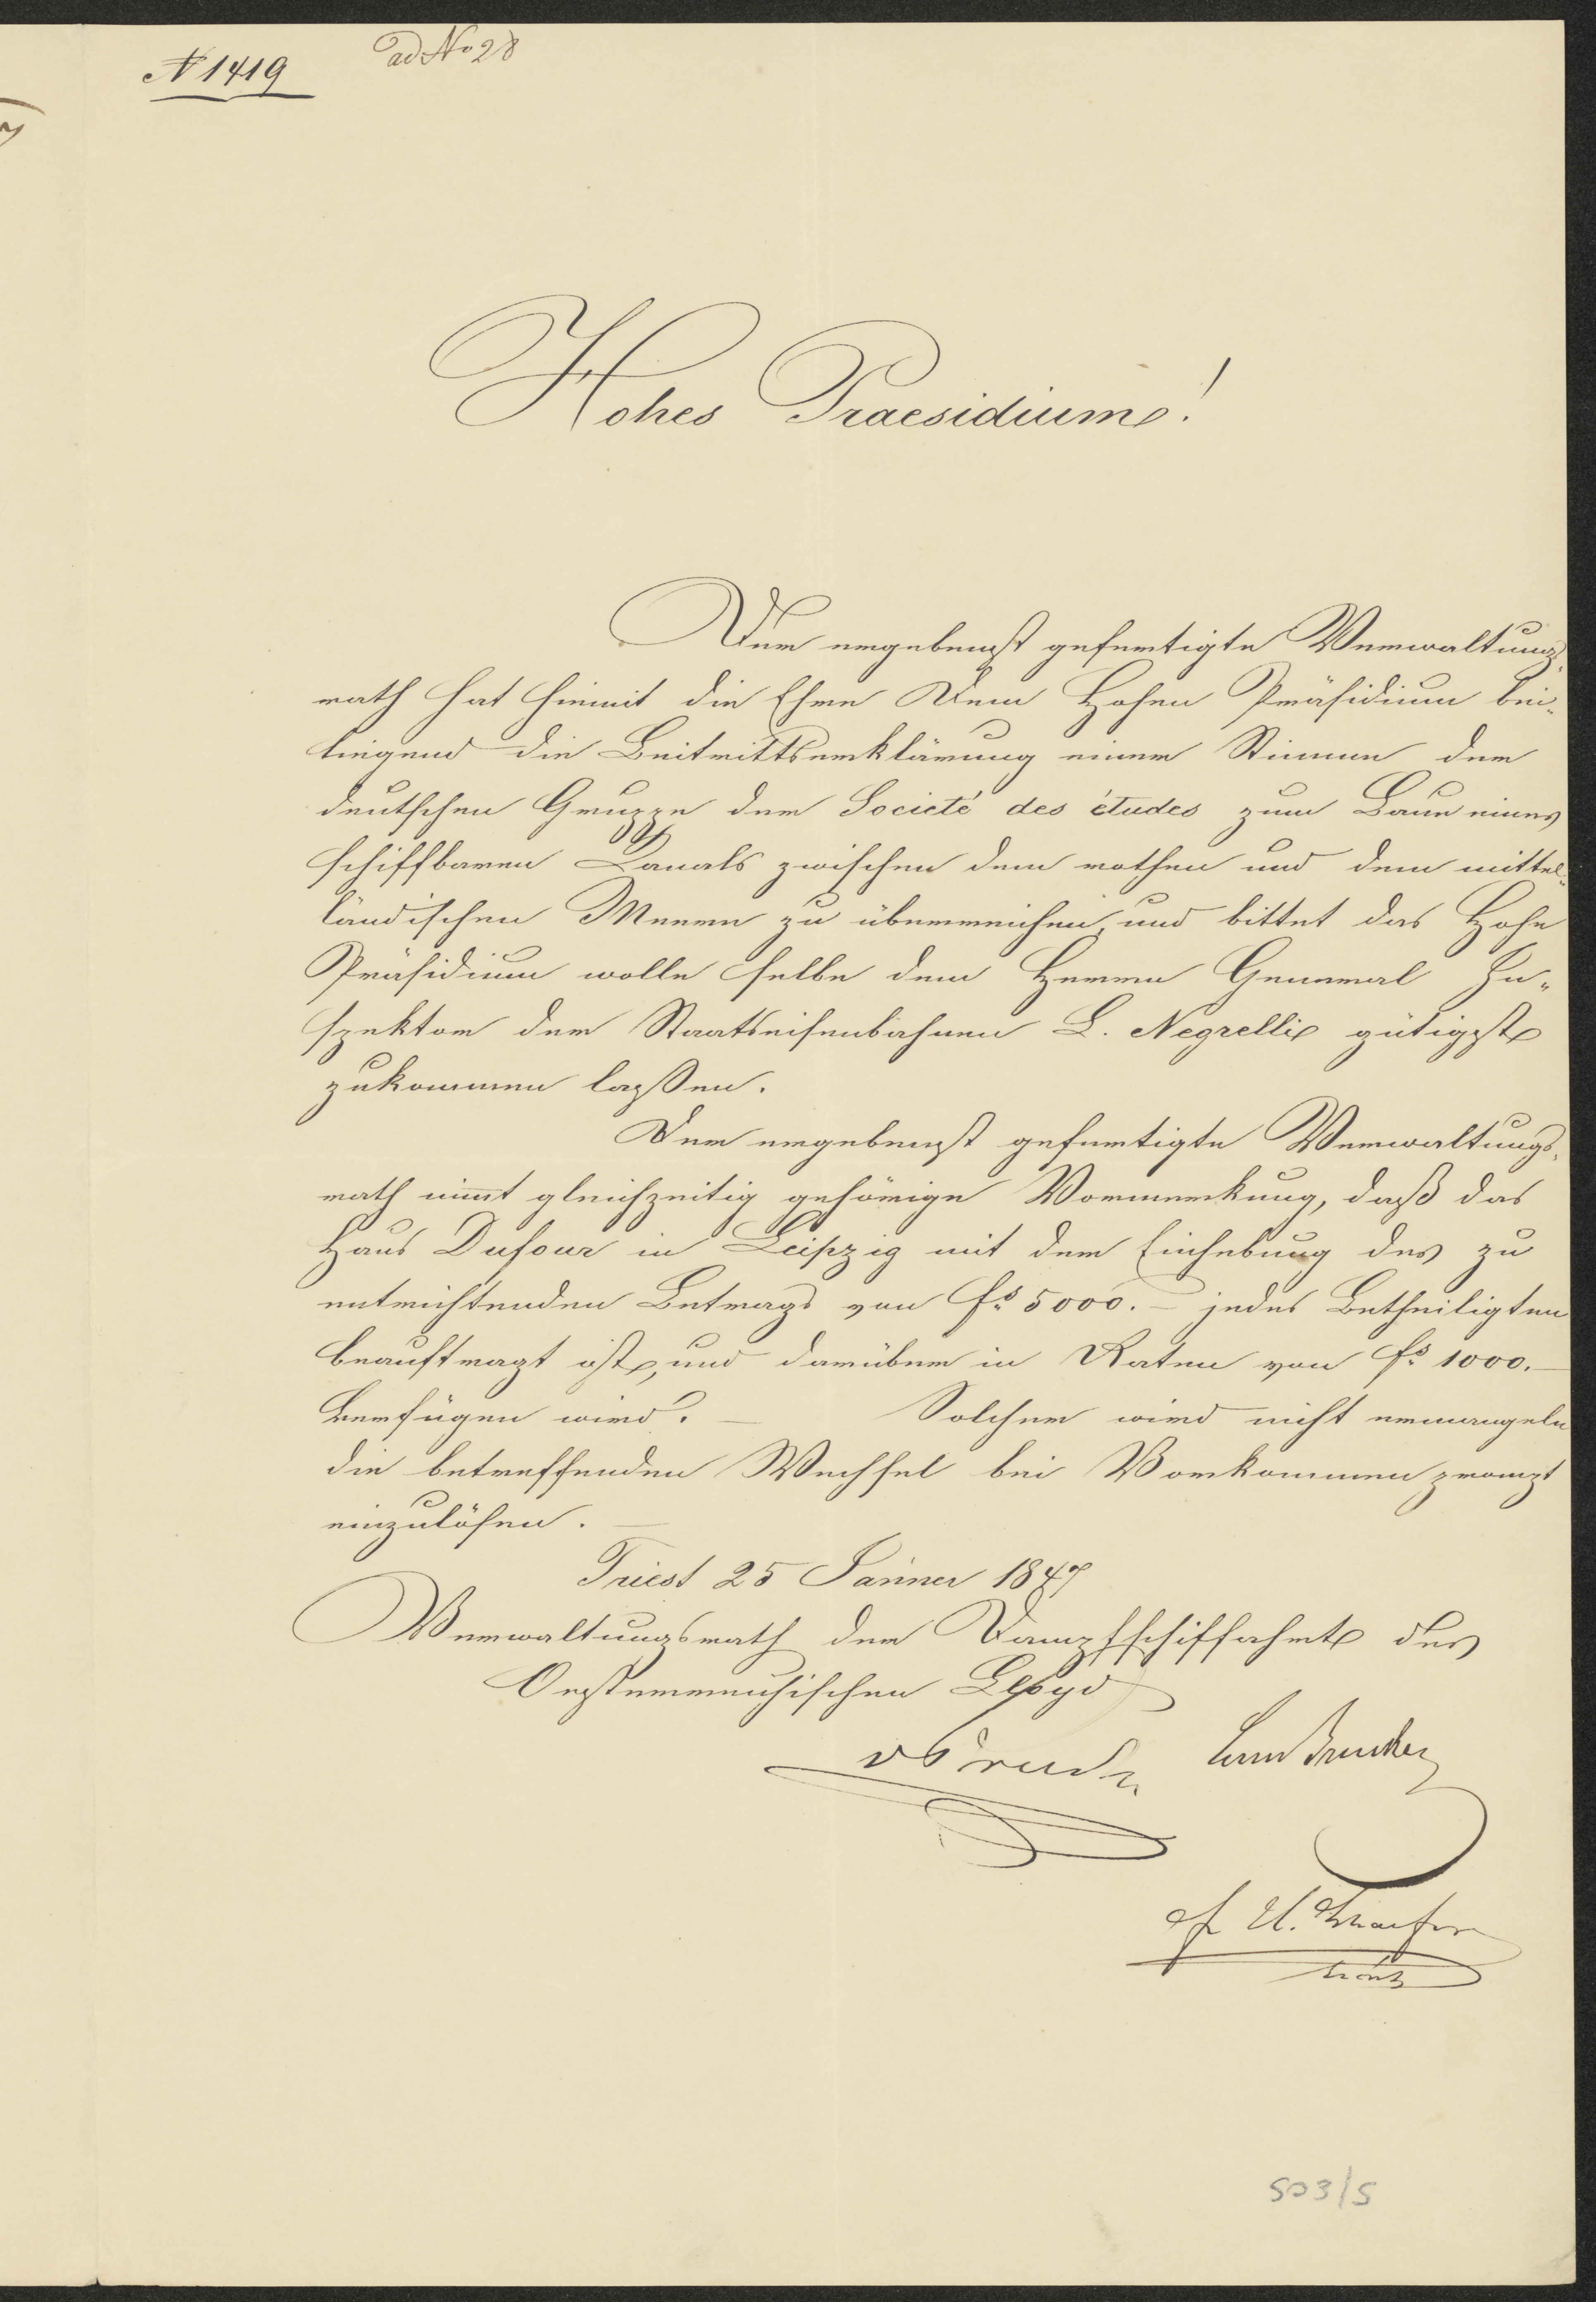 N 1419
ad No 28
Hohes Praesidium!
Der ergebenst gefertigte Verwaltungs-
rath hat hiemit die Ehre Dem Hohen Präsidium bei-
liegend die Beitrittserklärung einer Stimme der
deutschen Gruppe der Societé des études zum Baue eines
schiffbaren Canals zwischen dem rothen und dem mittel-
ländischen Meere zu überreichen, und bittet das Hohe
Präsidium wolle selbe dem Herrn General In-
spektor der Staatseisenbahnen L. Negrelli gütigst
zukommen lassen.
Der ergebenst gefertigte Verwaltungs-
rath nimt gleichzeitig gehörige Vormerkung, daß das
Haus Dufour in Leipzig mit der Einhebung des zu
entrichtenden Betrags von fs 5000.– jedes Betheiligten
beauftragt ist, und darüber in Raten von fs 1000.–
verfügen wird. – Solcher wird nicht ermangeln
die betreffenden Wechsel bei Vorkommen prompt
einzulösen. –
Triest 25 Jänner 1847
Verwaltungsrath der Dampfschiffahrt des
Oesterreichischen Lloyd
503/5